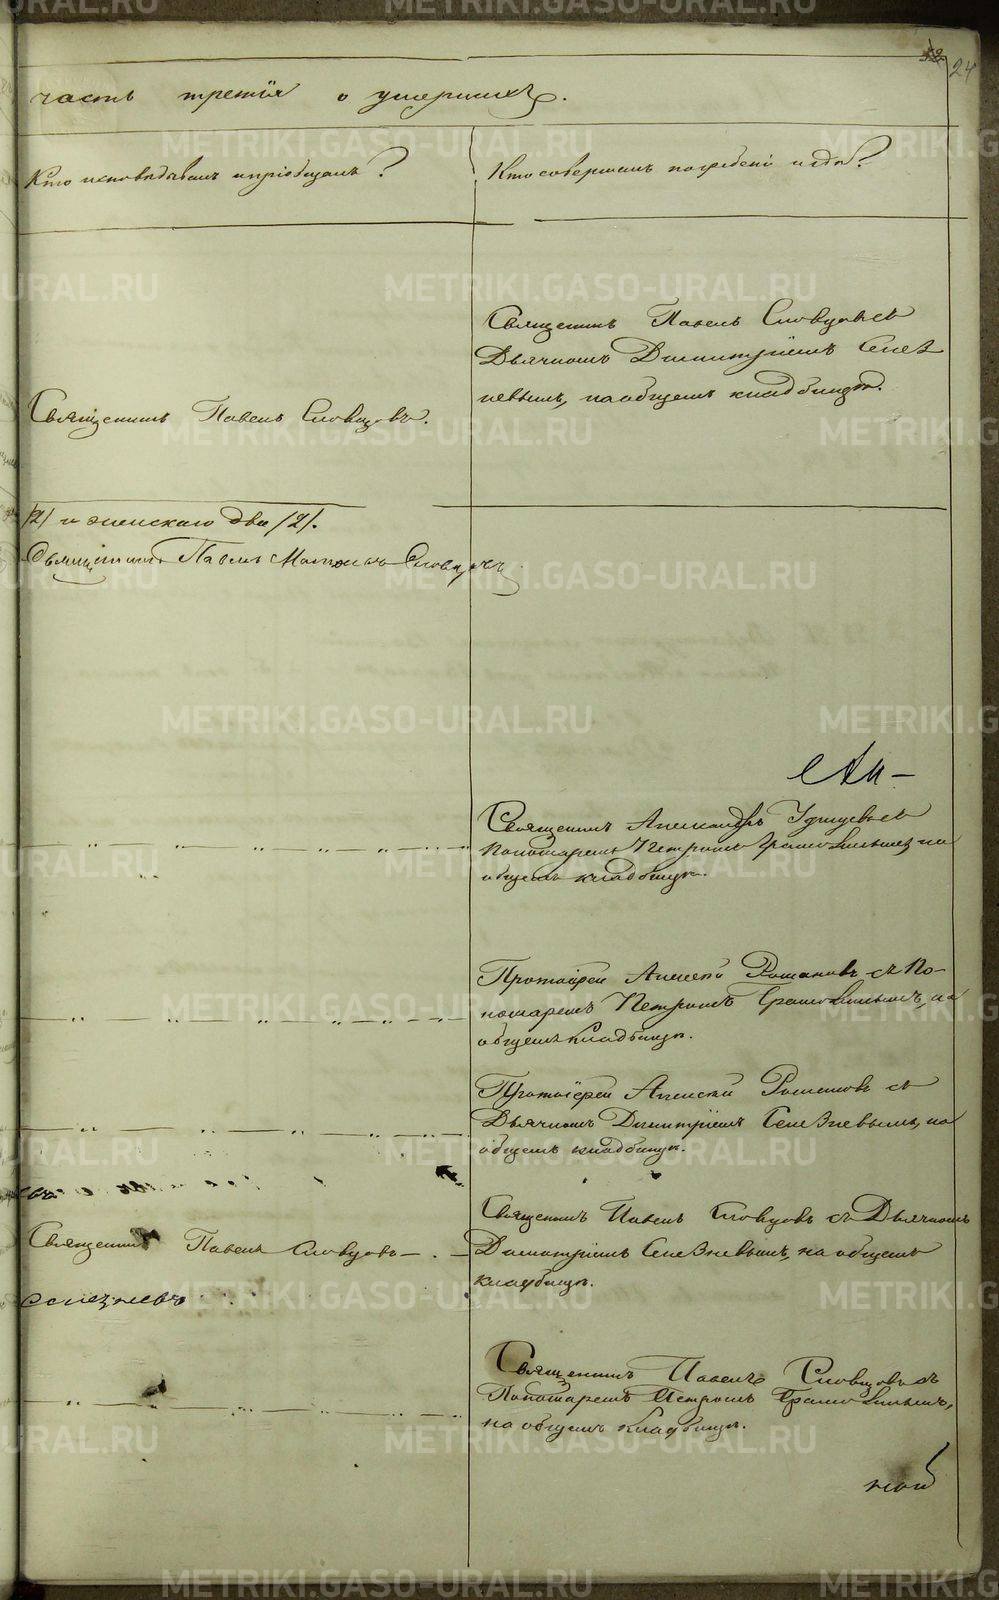 24
часть третiя о умершихъ.
Кто исповѣдывалъ и прiобщалъ?
Кто совершалъ погребенiе и гдѣ?
Священникъ Павелъ Словцовъ съ
Дьячкомъ Димитрiемъ Селез
невымъ, на общемъ кладбищѣ.
Священникъ Павелъ Словцовъ.
/2/ и женскаго два /2/.
Священникъ Павелъ Словцовъ
Священникъ Александръ съ
Пономаремъ Петромъ на
общемъ кладбищѣ.
Протоiерей Алексѣй Романовъ съ По-
номаремъ Петромъ на
общемъ кладбищѣ.
Протоiерей Алексѣй Романовъ съ
Дьячкомъ Димитрiемъ Селезневымъ, на
общемъ кладбищѣ.
Священникъ Павелъ Словцовъ съ Дьячкомъ
Димитрiемъ Селезневымъ, на общемъ
кладбищѣ.
Священникъ Павелъ Словцовъ
Селезневъ
Священникъ Павелъ Словцовъ съ
Пономаремъ Петромъ
на общемъ кладбищѣ.
METRIKI.GASO-URAL.RU